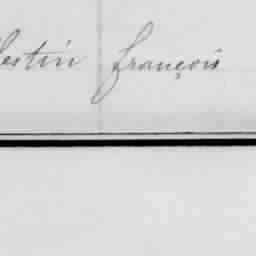 lestin françois